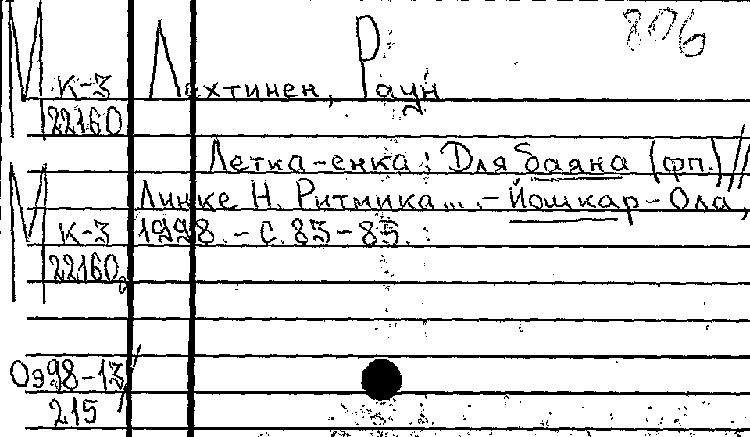 806
М
К-3
22160
Лехтинен, Раун
Летка-енка: Для баяна (фп.) //
Линке Н. Ритмика... - Йошкар-Ола,
1998. - С. 83-85.
М
К-3
22160
Оэ98-13/
215